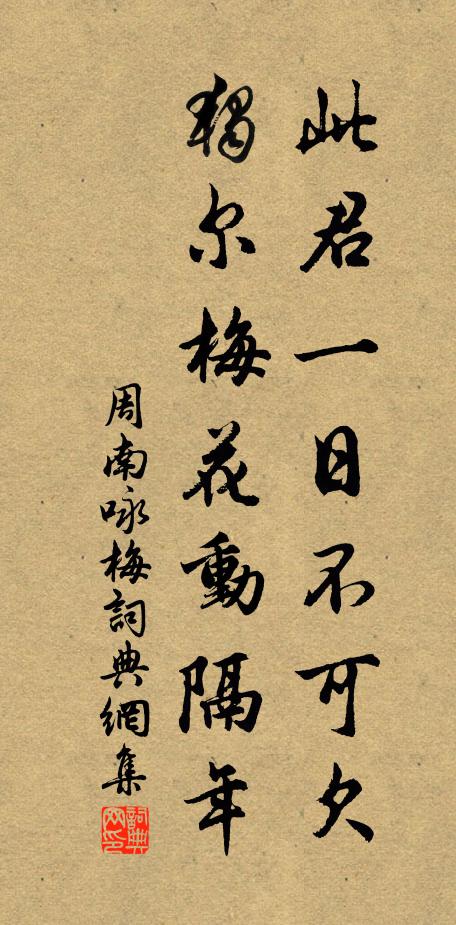 此君一日不可欠
獨尔梅花動隔年
周南咏梅詞典網集
詞典網印